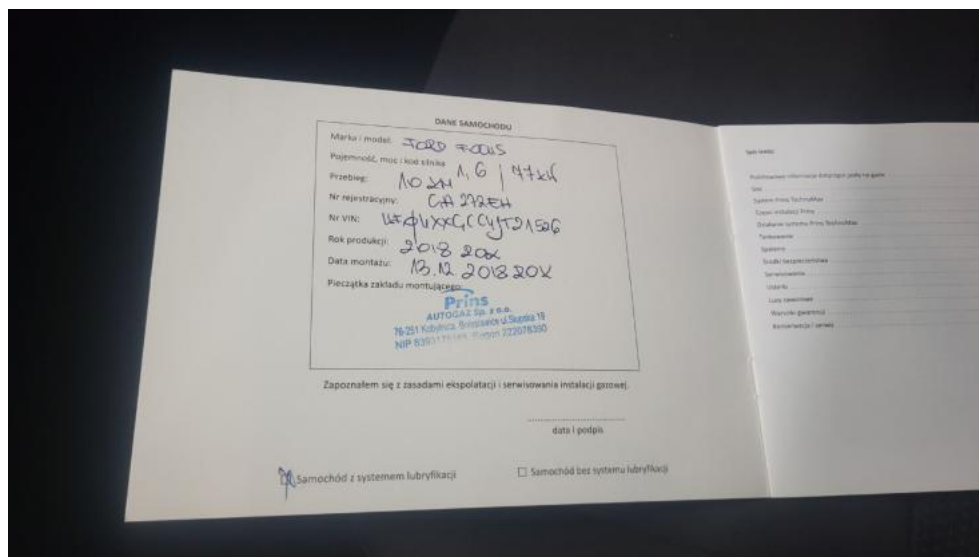 DANE SAMOCHODU
Marka i model: FORD FOCUS
Pojemność, moc i kod silnika 1,6 / 77kW
Przebieg: 10 KM
Nr rejestracyjny: GA 272EH
Nr VIN:
Rok produkcji: 2018 ROK
Data montażu: 13.12 2018 ROK
Pieczątka zakładu montującego:
Prins
AUTOGAZ Sp. z o.o.
76-251 Kobylnica, ul. Słupska 19
NIP Regon 222078390
Zapoznałem się z zasadami ekspolatacji i serwisowania instalacji gazowej.
data i podpis
Samochód z systemem lubryfikacji
Samochód bez systemu lubryfikacji
Spis treści
Podstawowe informacje dotyczące jazdy na gazie
Gaz
System Prins TechnoMax
Części instalacji Prins
Działanie systemu Prins TechnoMax
Tankowanie
Spalanie
Środki bezpieczeństwa
Serwisowanie
Usterki
Luzy zaworowe
Warunki gwarancji
Konserwacja i serwis